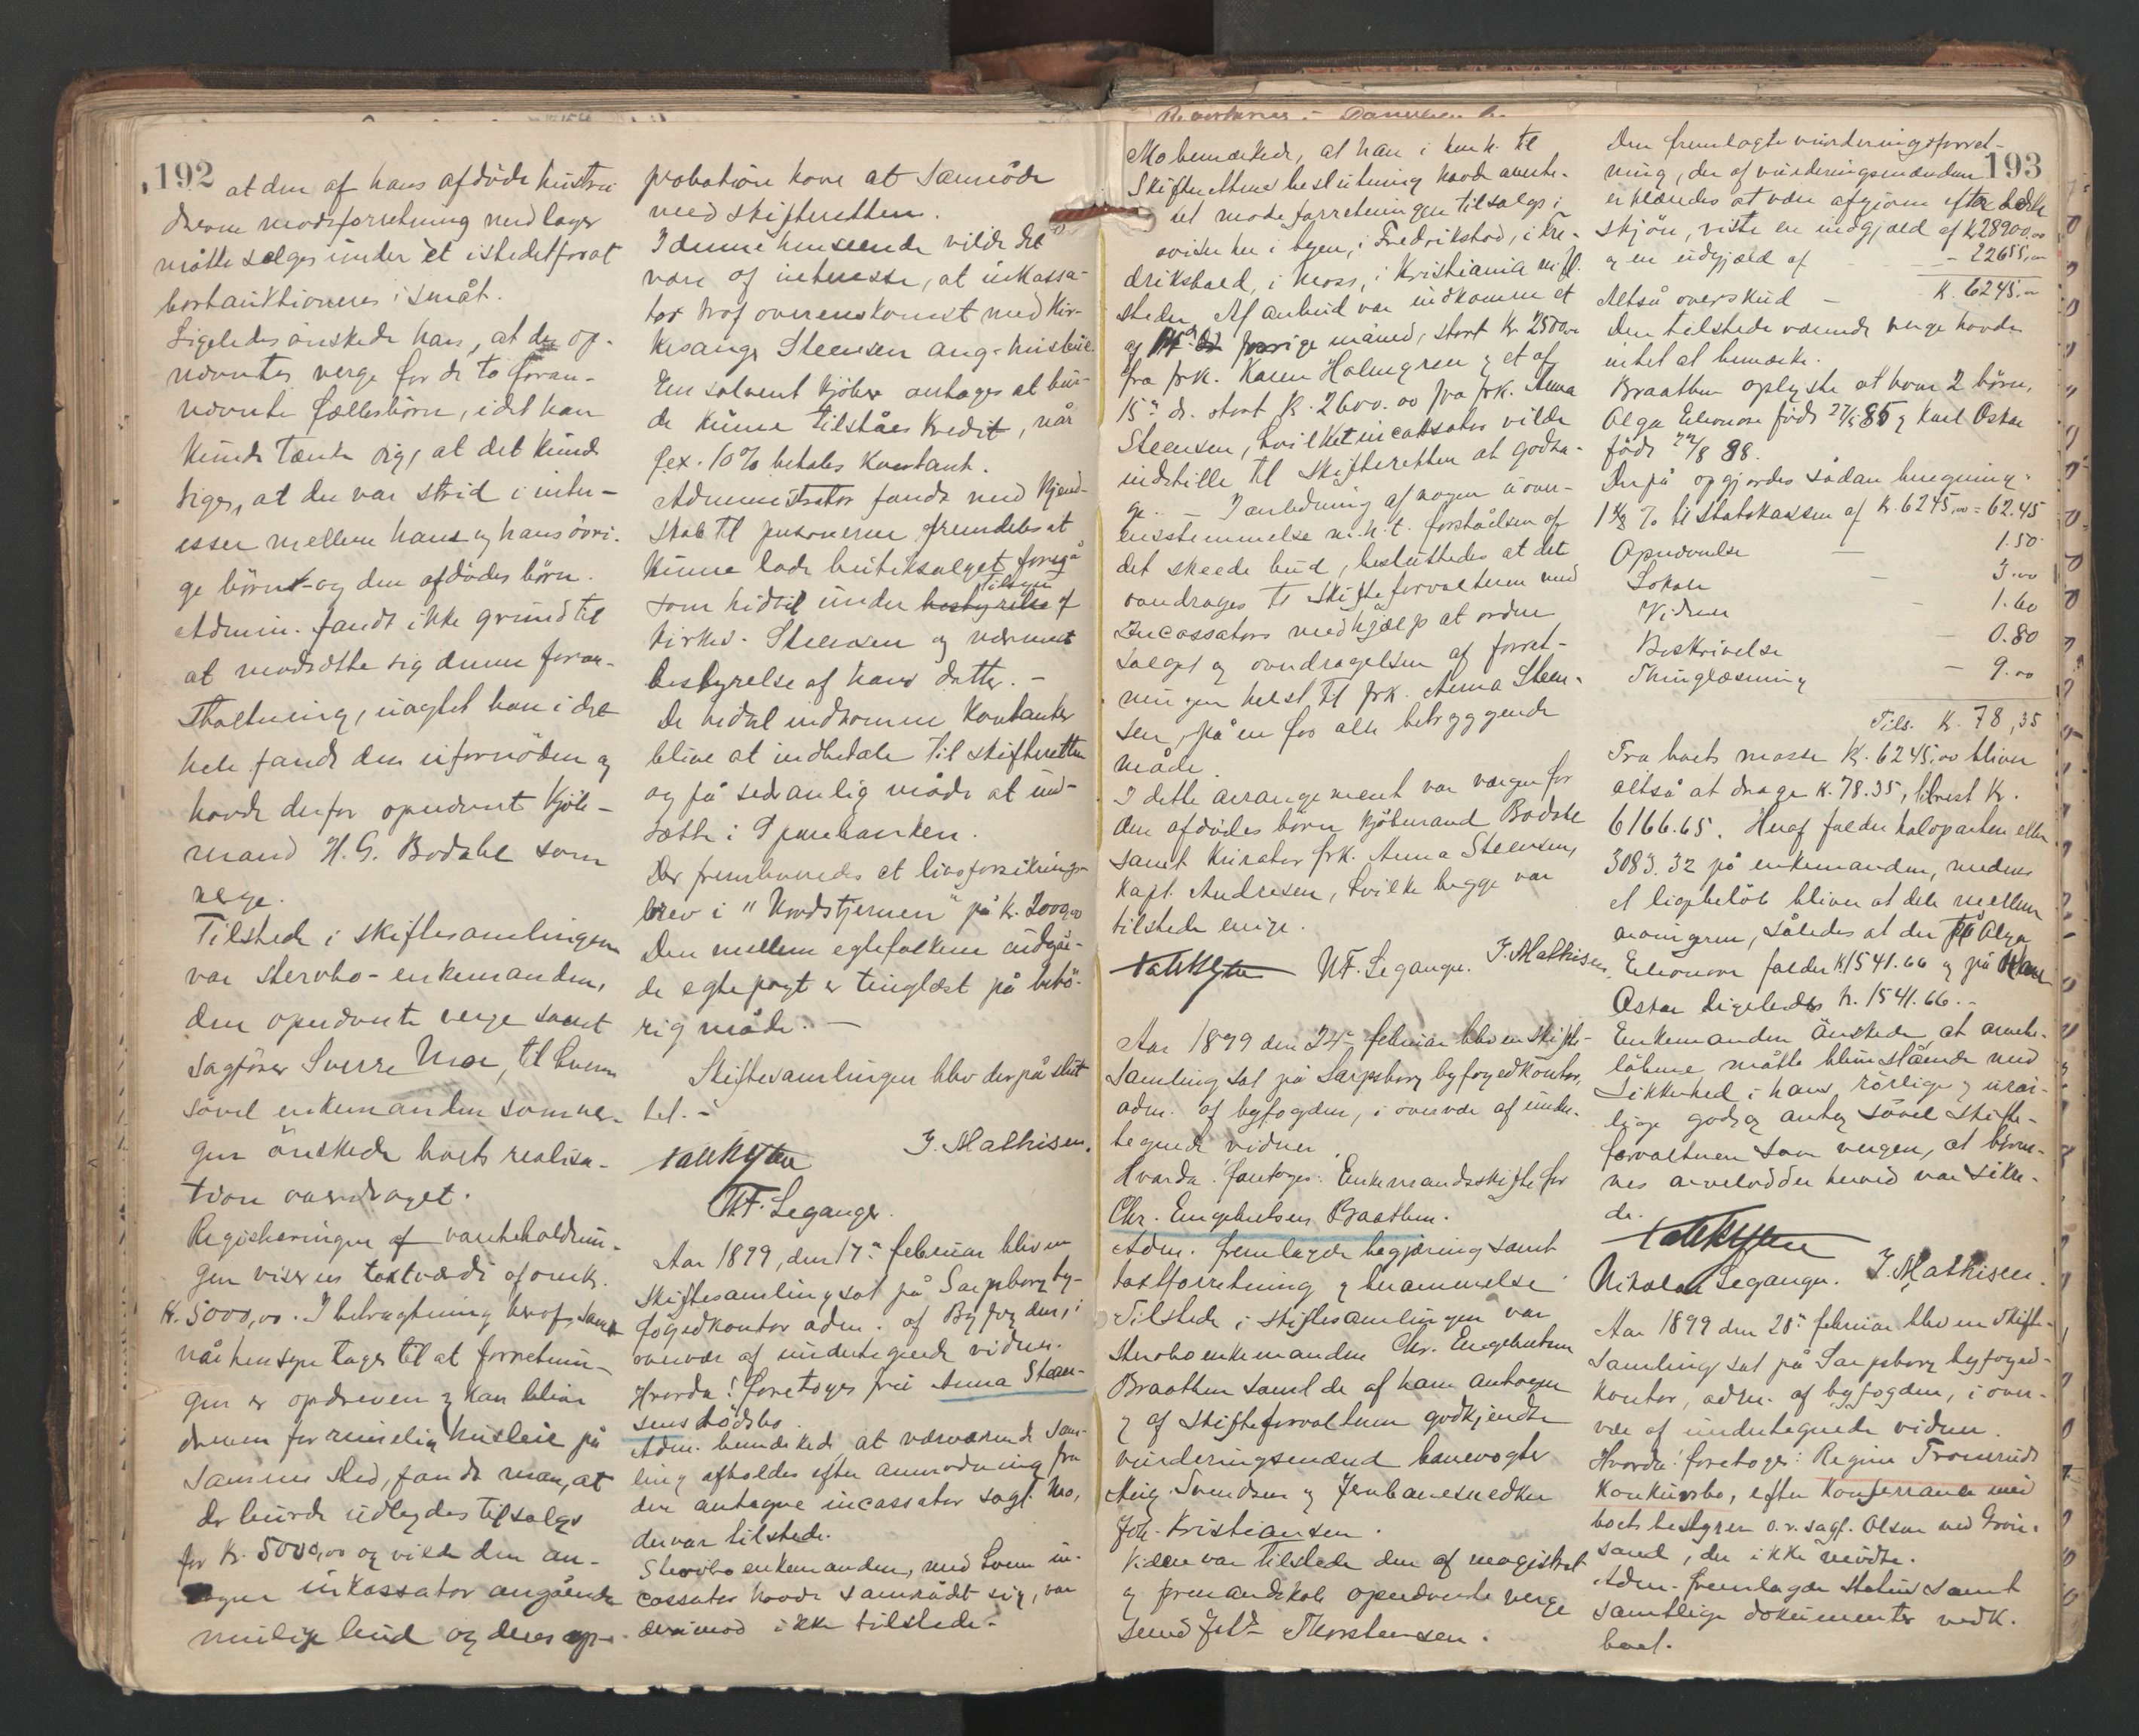 192
at den af hans afdöde hustru
drevne modeforretning med lager
måtte selges under ét istedetforat
bortauktioneres i småt.
Ligeledes önskede han, at der op-
nevntes verge for de to foran-
nevnte fællesbörn, idet han
kunde tænke sig, at det kunde
siges, at der var strid i inter-
esser mellem hans og hans övri-
ge börn og den afdödes börn.
Admin. fandt ikke grund til
at modsætte sig denne foran-
staltning, uagtet han i det
hele fandt den ufornöden og
havde derfor opnevnt kjöb-
mand H. G. Bodahl som
verge.
Tilstede i skiftesamlingen
var stervbo-enkemanden,
den opnevnte verge samt
sagförer Sverre Moe, til hvem
såvel enkemanden som ver-
gen önskede boets realisa-
tion overdraget.
Registreringen af varebeholdnin-
gen viser en takstværdi af omk.
kr. 5000,00. I betragtning heraf, samt
når hensyn tages til at forretnin-
gen er opdreven og kan blive
dreven for rimelig husleie på
samme sted, fandt man, at
der burde udbydes tilsalgs
for kr. 5000,00 og vilde den an-
tagne inkassator angående
mulige bud og deres ap-
probation have at samråde
med skifteretten.
I denne henseende vilde det
være af interesse, at inkassa-
tor traf overenskomst med Kir-
kesanger Steensen ang. husleie.
En solvent kjöber antages at bur-
de kunne tilståes kredit, når
f.ex. 10% betales kontant.
Administrator fandt med kjend-
skab til personerne fremdeles at
kunne lade butiksalget foregå
som hidtil under tilsyn af
kirkes. Steensen og nærmest
bestyrelse af hans datter. –
De hidtil indkomne kontanter
blive at indbetale til skifteretten
og på sedvanlig måde at ind-
sætte i Sparebanken.
Der fremlevneredes et livsforsikrings-
brev i "Nordstjernen" på kr. 2000,00
Den mellem egtefolkene indgåe-
de egtepagt er tinglæst på behö-
rig måde. –
Skiftesamlingen blev derpå slut
tet. –
J. Mathisen.
N.F. Leganger.
Aar 1899, den 17de februar blev en
skiftesamling sat på Sarpsborg by-
fogedkontor adm. af Byfogden, i
overvær af undertegnede vidner.
Hvorda! foretoges fru Anna Steen-
sens dödsbo.
Adm. bemærkede at nærværende sam-
ling afholdes efter anmodning fra
den antagne incassator sagf. Mo,
der var tilstede.
Stervboenkemanden, med hvem in-
cassator havde samrådt sig, var
derimod ikke tilstede.
193
Mo bemærkede, at han i henh. til
Skifterettens beslutning havde averte-
ret modeforretningen tilsalgs i
aviser her i byen, i Fredrikstad, i Fre-
drikshald, i Moss, i Kristiania m.fl.
steder. Af anbud var indkommen et
af 14de forrige måned, stort kr. 2500,00
fra frk. Karen Holmgren og et af
15de ds. stort kr. 2600.00 fra frk. Anna
Steensen, hvilket incassator vilde
indstille til skifteretten at godta-
ge. – I anledning af nogen uover-
ensstemmelse m.h.t. forståelsen af
det skeede bud, besluttedes at det
overdrages til skifteforvalteren med
Incassators medhjælp at ordne
salget og overdragelsen af forret-
ningen helst til frk. Anna Steen-
sen, på en for alle betryggende
måde.
I dette arrangement var vergen for
den afdödes börn kjöbmand Bodahl
samt kurator for frk. Anna Steensen,
kapt. Andresen, hvilke begge var
tilstede enige.
N.F. Leganger. J. Mathisen.
Aar 1899 den 24de februar blev en skifte-
samling sat på Sarpsborg byfogedkontor,
adm. af byfogden, i overvær af under-
tegnede vidner.
Hvorda! foretoges: Enkemandsskifte for
Chr. Engebretsen Braathen.
Adm. fremlagde begjæring samt
takstforretning og berammelse
Tilstede i skiftesamlingen var
stervboenkemanden Chr. Engebretsen
Braathen samt de af ham antagne
og af skifteforvalteren godkjendte
vurderingsmænd banevogter
Aug. Svendsen og Jernbanesnedker
Joh. Kristiansen.
Videre var tilstede den af magistrat
og formandskab opnevnte verge
Thorstensen.
Den fremlagte vurderingsforret-
ning, der af vurderingsmændene
erklændes at være afgiven efter bedste
skjön, viste en indgjæld af kr. 28900,00
og en udgjæld af – – 22655,00
Altså overskud – K. 6245.00
Den tilstede værende verge havde
intet at bemærke.
Braathen oplyste at have 2 börn,
Olga Eleonore födt 27/5 85 og Karl Oskar
födt 22/8 88.
Derpå opgjordes sådan beregning:
1% til Statskassen af kr. 6245,00 = 62.45
Opnevnelse — 1.50
Lokale — 3.00
Vidner – 1.60
Beskrivelse — 0.80
Thinglæsning — 9.00
Tils. K. 78,35
Fra boets masse kr. 6245,00 bliver
altså at drage K. 78.35, tilrest kr.
6166.65. Heraf falder halvparten eller
3083.32 på enkemanden, medens
et ligebelöb bliver at dele mellem
arvingerne, således at der på Olga
Eleonore falder K. 1541.66 og på Karl
Oskar ligeledes kr. 1541.66. –
Enkemanden önskede at arvebe-
löbene måtte blive stående med
Sikkerhed i hans rörlige og urör-
lige gods og antog såvel skifte-
forvalteren som vergen, at börne-
nes arvelodder herved var sikre-
de.
Nikolai Leganger. J. Mathisen.
Aar 1899 den 28de februar blev en skifte-
samling sat på Sarpsborg byfoged-
kontor, adm. af byfogden, i over-
vær af undertegnede vidner.
Hvorda! foretoges: Regine Tronruds
Konkursbo, efter konferrance med
boets bestyrer o.r. sagf. Olsen ved Grön-
sand, der ikke mödte.
Adm. fremlagde status samt
samtlige dokumenter vedk.
boet.